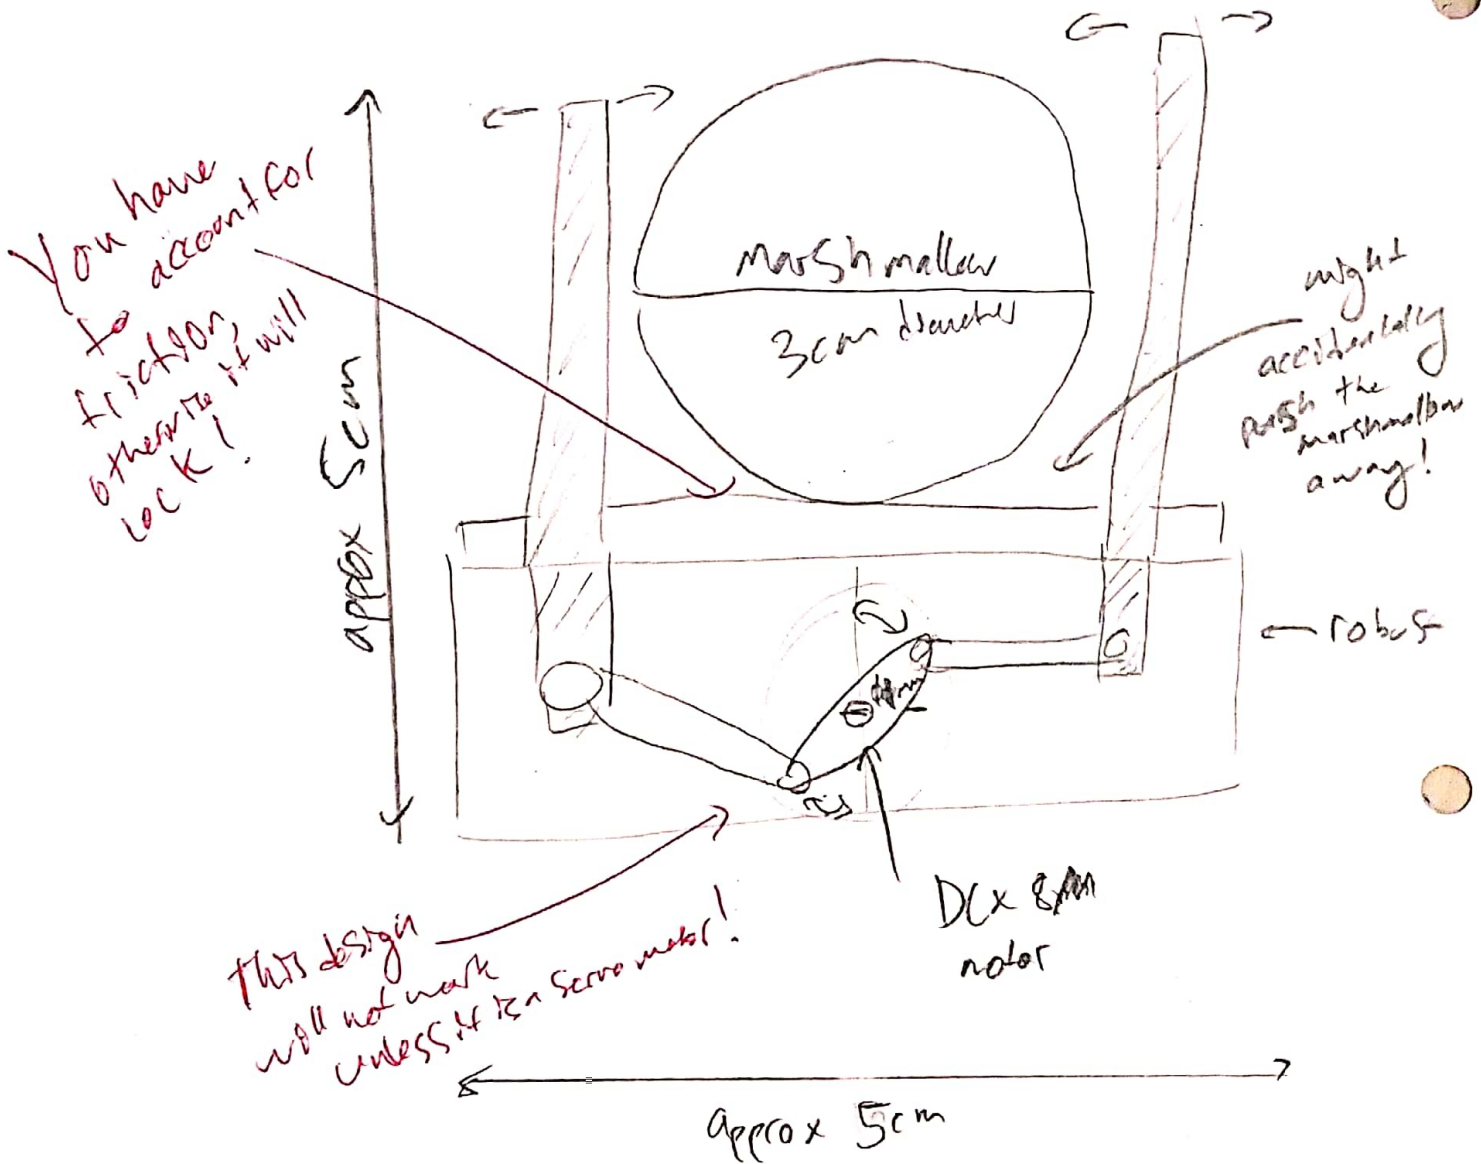 You have
to account for
friction,
otherwise it will
lock!
approx 5cm
marshmallow
3cm diameter
might
accidentally
push the
marshmallow
away!
← robot
DCX 8
motor
This design
will not work
unless it is a servo motor!
approx 5cm